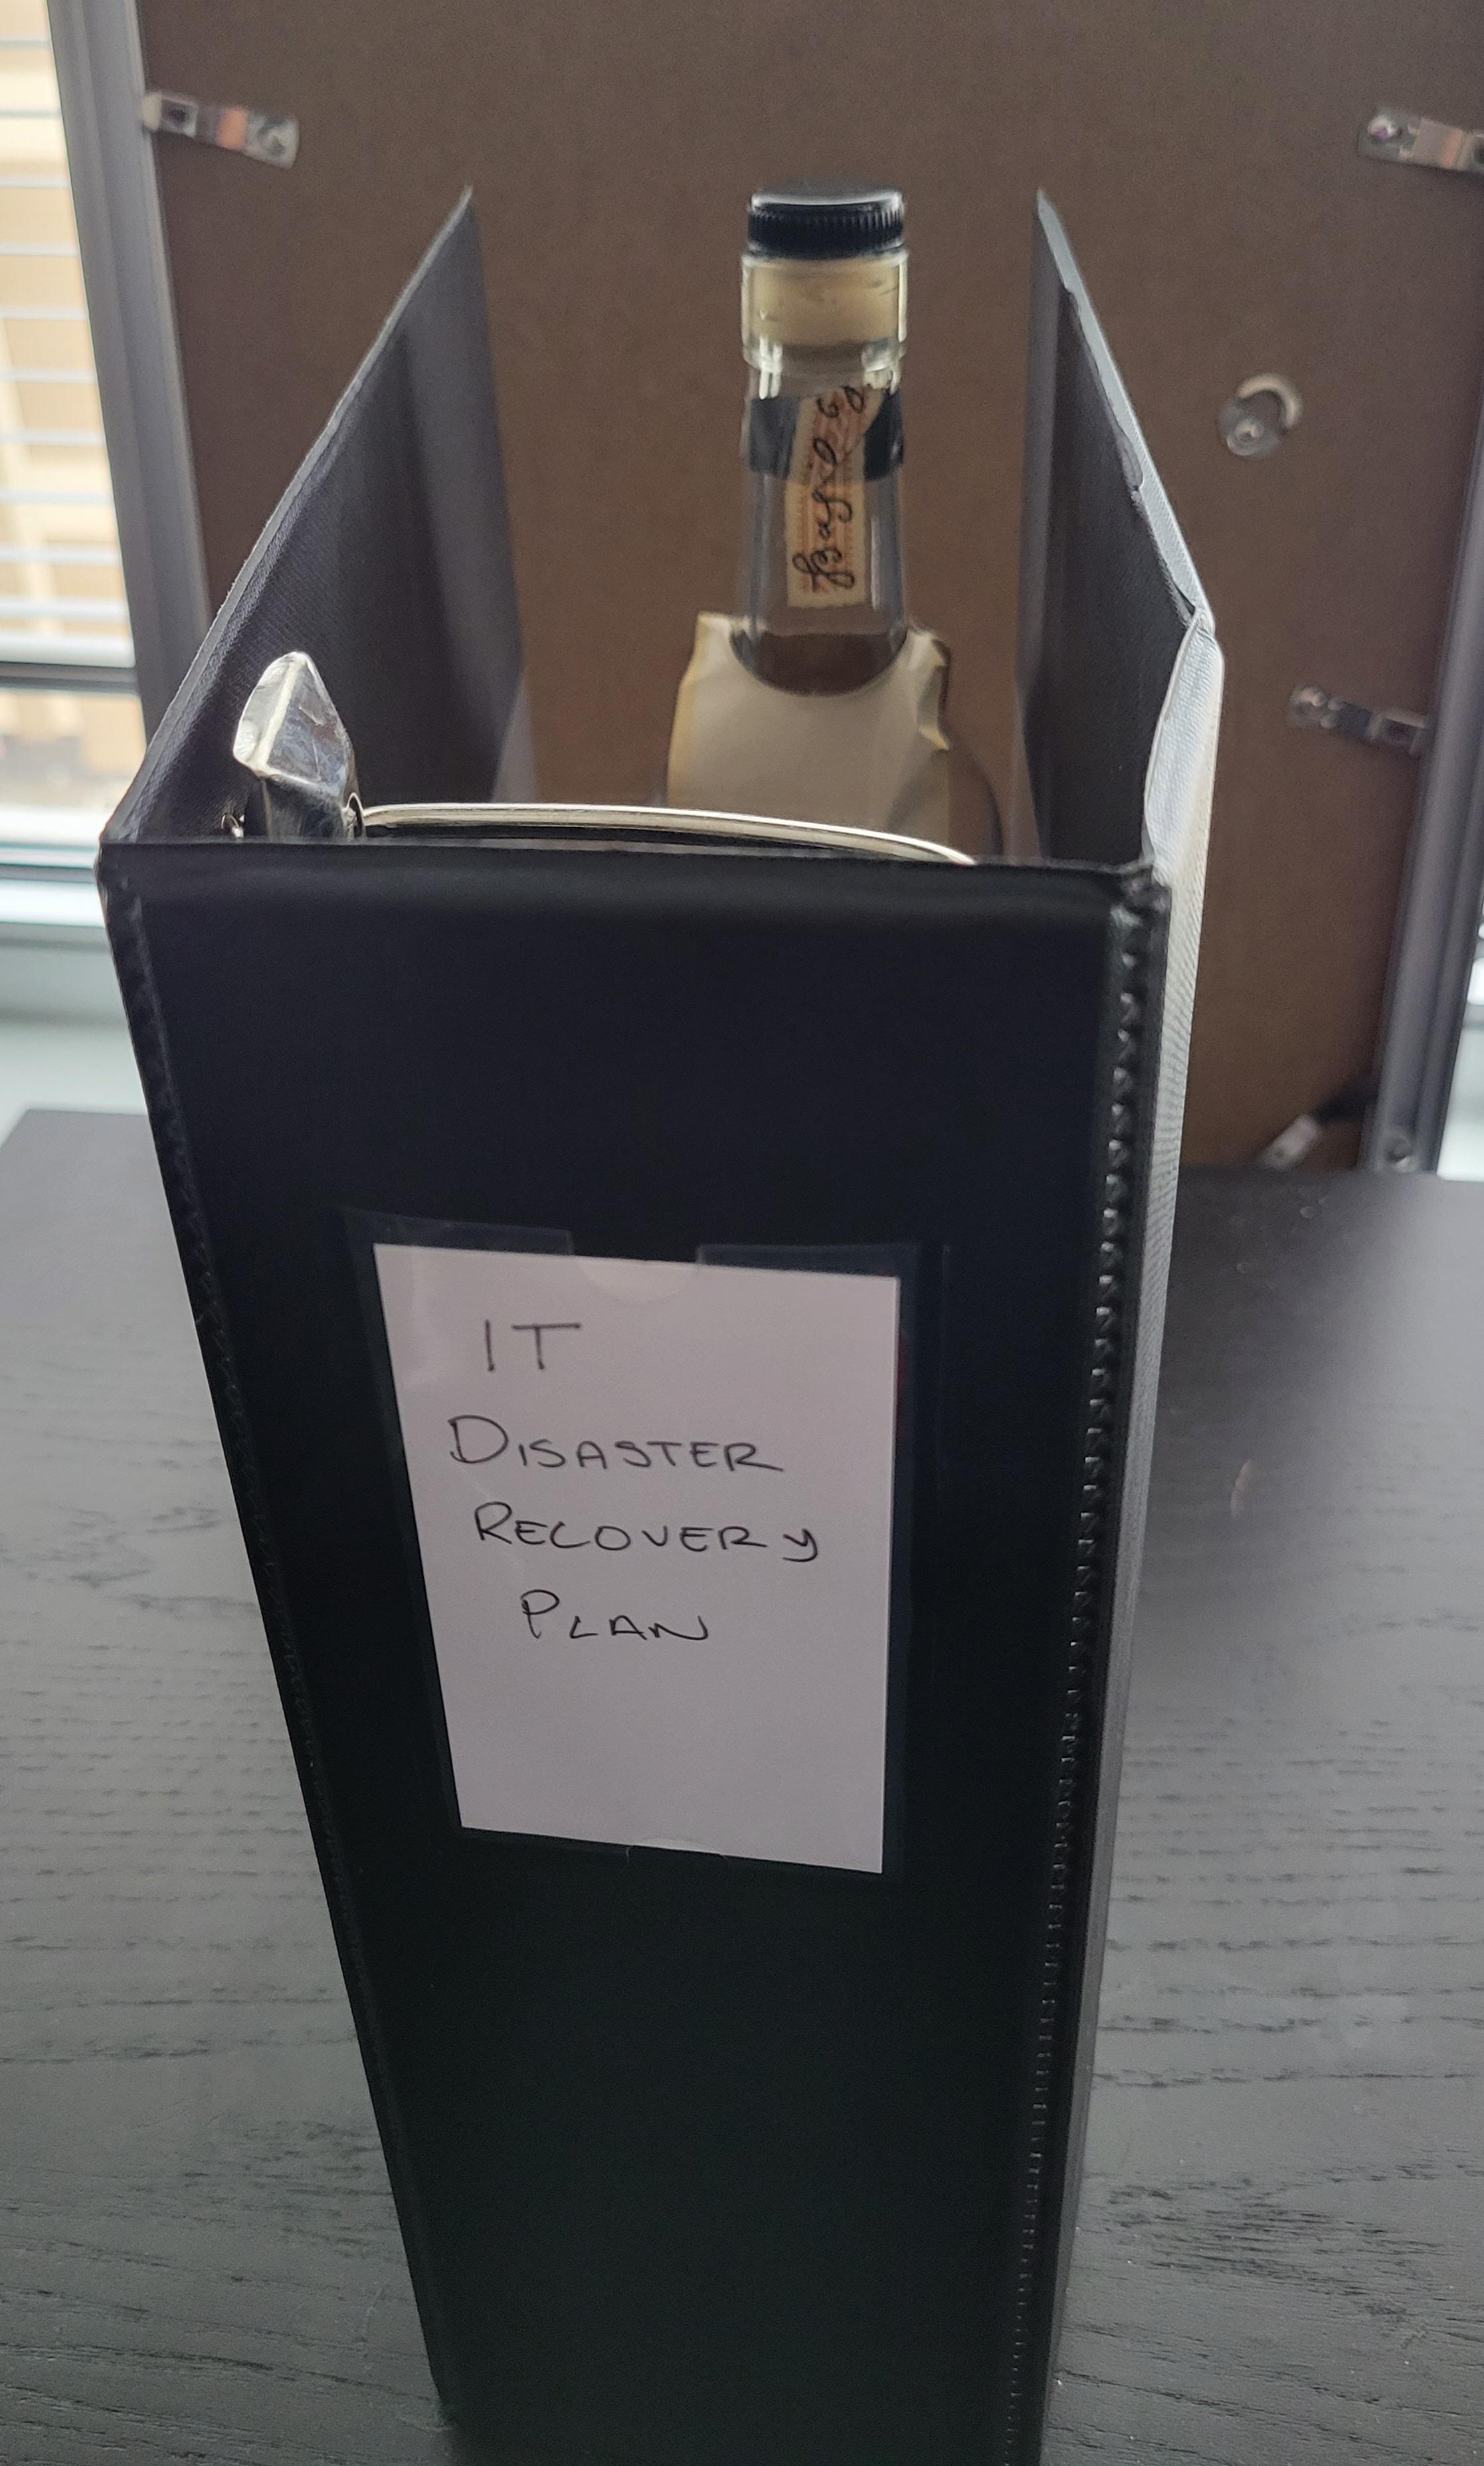 IT
DISASTER
RECOVERY
PLAN